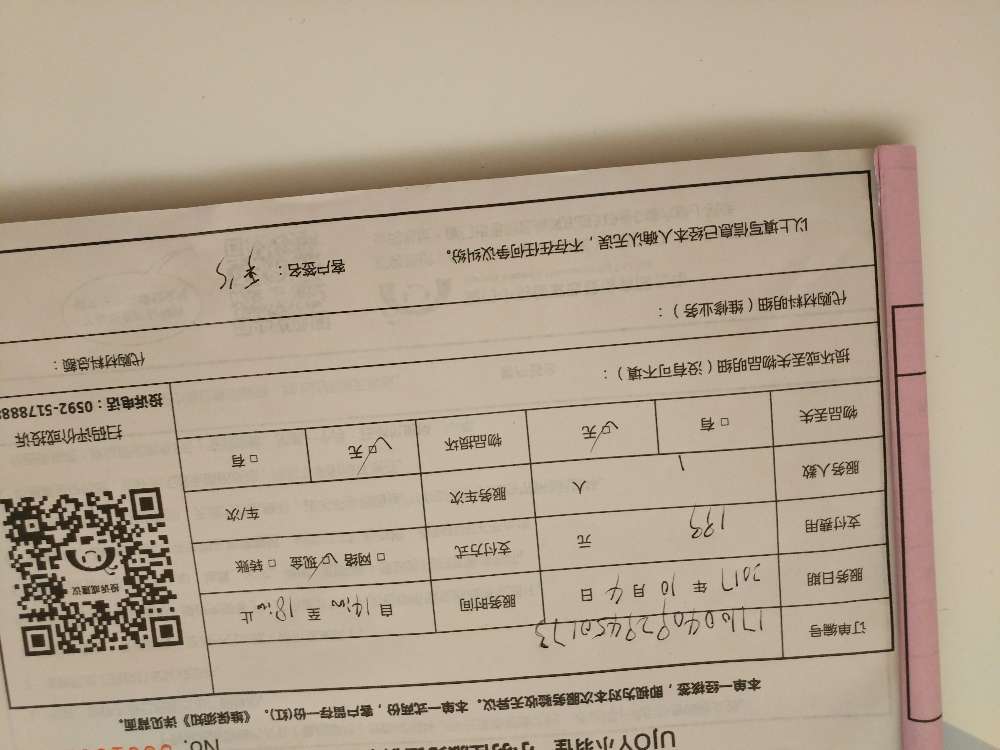 UJOY小羽佳
No.
本单一经核签，即视为对本次服务验收无异议。本单一式两份，客户留存一份(红)。《维保须知》详见背面。
订单编号 1710040929450173
服务日期 2017 年 10 月 4 日 服务时间 自 14:00 至 18:00 止
支付费用 199 元 支付方式 □ 网络 □ 现金 □ 转账
服务人数 1 人 服务车次 车/次
物品丢失 □ 有 □ 无 物品损坏 □ 无 □ 有
投诉或建议
扫码评价或投诉
投诉电话：0592-517888
损坏或丢失物品明细（没有可不填）：
代购材料明细（维修业务）： 代购材料总额：
以上填写信息已经本人确认无误，不存在任何争议纠纷。 客户签名：